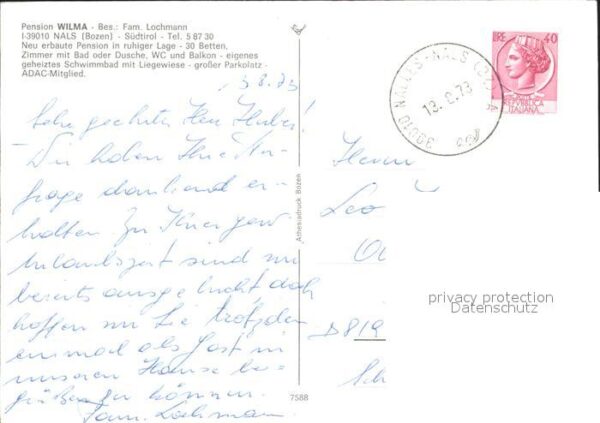 Pension WILMA - Bes.: Fam. Lochmann
I-39010 NALS (Bozen) - Südtirol - Tel. 5 87 30
Neu erbaute Pension in ruhiger Lage - 30 Betten,
Zimmer mit Bad oder Dusche, WC und Balkon - eigenes
geheiztes Schwimmbad mit Liegewiese - großer Parkplatz -
ADAC-Mitglied.
Sehr geehrter Herr Huber!
Wir haben Ihre An-
frage dankend er-
halten. Zu Ihrer gew.
Urlaubszeit sind wir
bereits ausgebucht doch
hoffen wir Sie trotzdem
einmal als Gast in
unserem Hause be-
grüßen zu können.
Fam. Lochmann
Athesiadruck Bozen
7588
LIRE 40
REPVBBLICA
ITALIANA
39010 NALLES-NALS (BZ) A
13.8.73
Herrn
Leo
D 819
privacy protection
Datenschutz